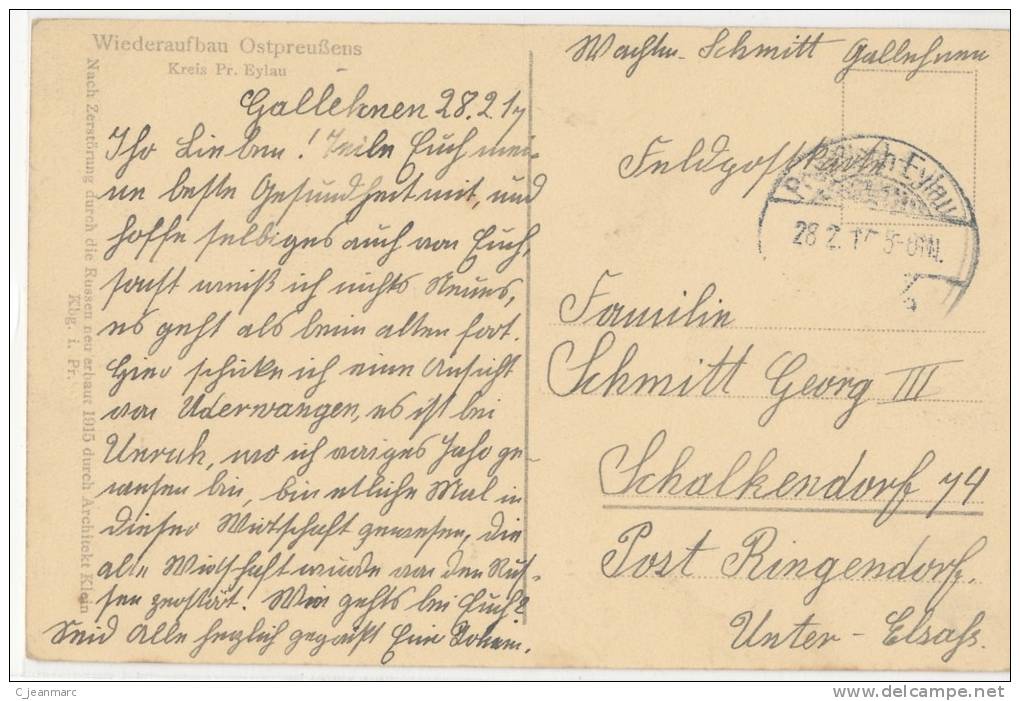 Wiederaufbau Ostpreußens
Kreis Pr. Eylau
Nach Zerstörung durch die Russen neu erbaut 1915 durch Architekt Klein
Kbg. i. Pr.
Gallehnen 28.2.17
Ihr Lieben! Teile Euch mei-
ne beste Gesundheit mit, und
hoffe selbiges auch von Euch,
sonst weiß ich nichts Neues,
es geht als beim alten fort.
Hier schicke ich eine Ansicht
von Uderwangen, es ist bei
Unruh, wo ich voriges Jahr ge-
wesen bin, bin etliche Mal in
dieser Wirtschaft gewesen, die
alte Wirtschaft wurde von den Rus-
sen zerstört. Wie gehts bei Euch?
Seid Alle herzlich gegrüßt Euer
Wachtm. Schmitt Gallehnen
Feldpostkarte
Pr. Eylau
28.2.17 5-6 N.
Familie
Schmitt Georg III
Schalkendorf 74
Post Ringendorf.
Unter-Elsaß.
C_jeanmarc
www.delcampe.net